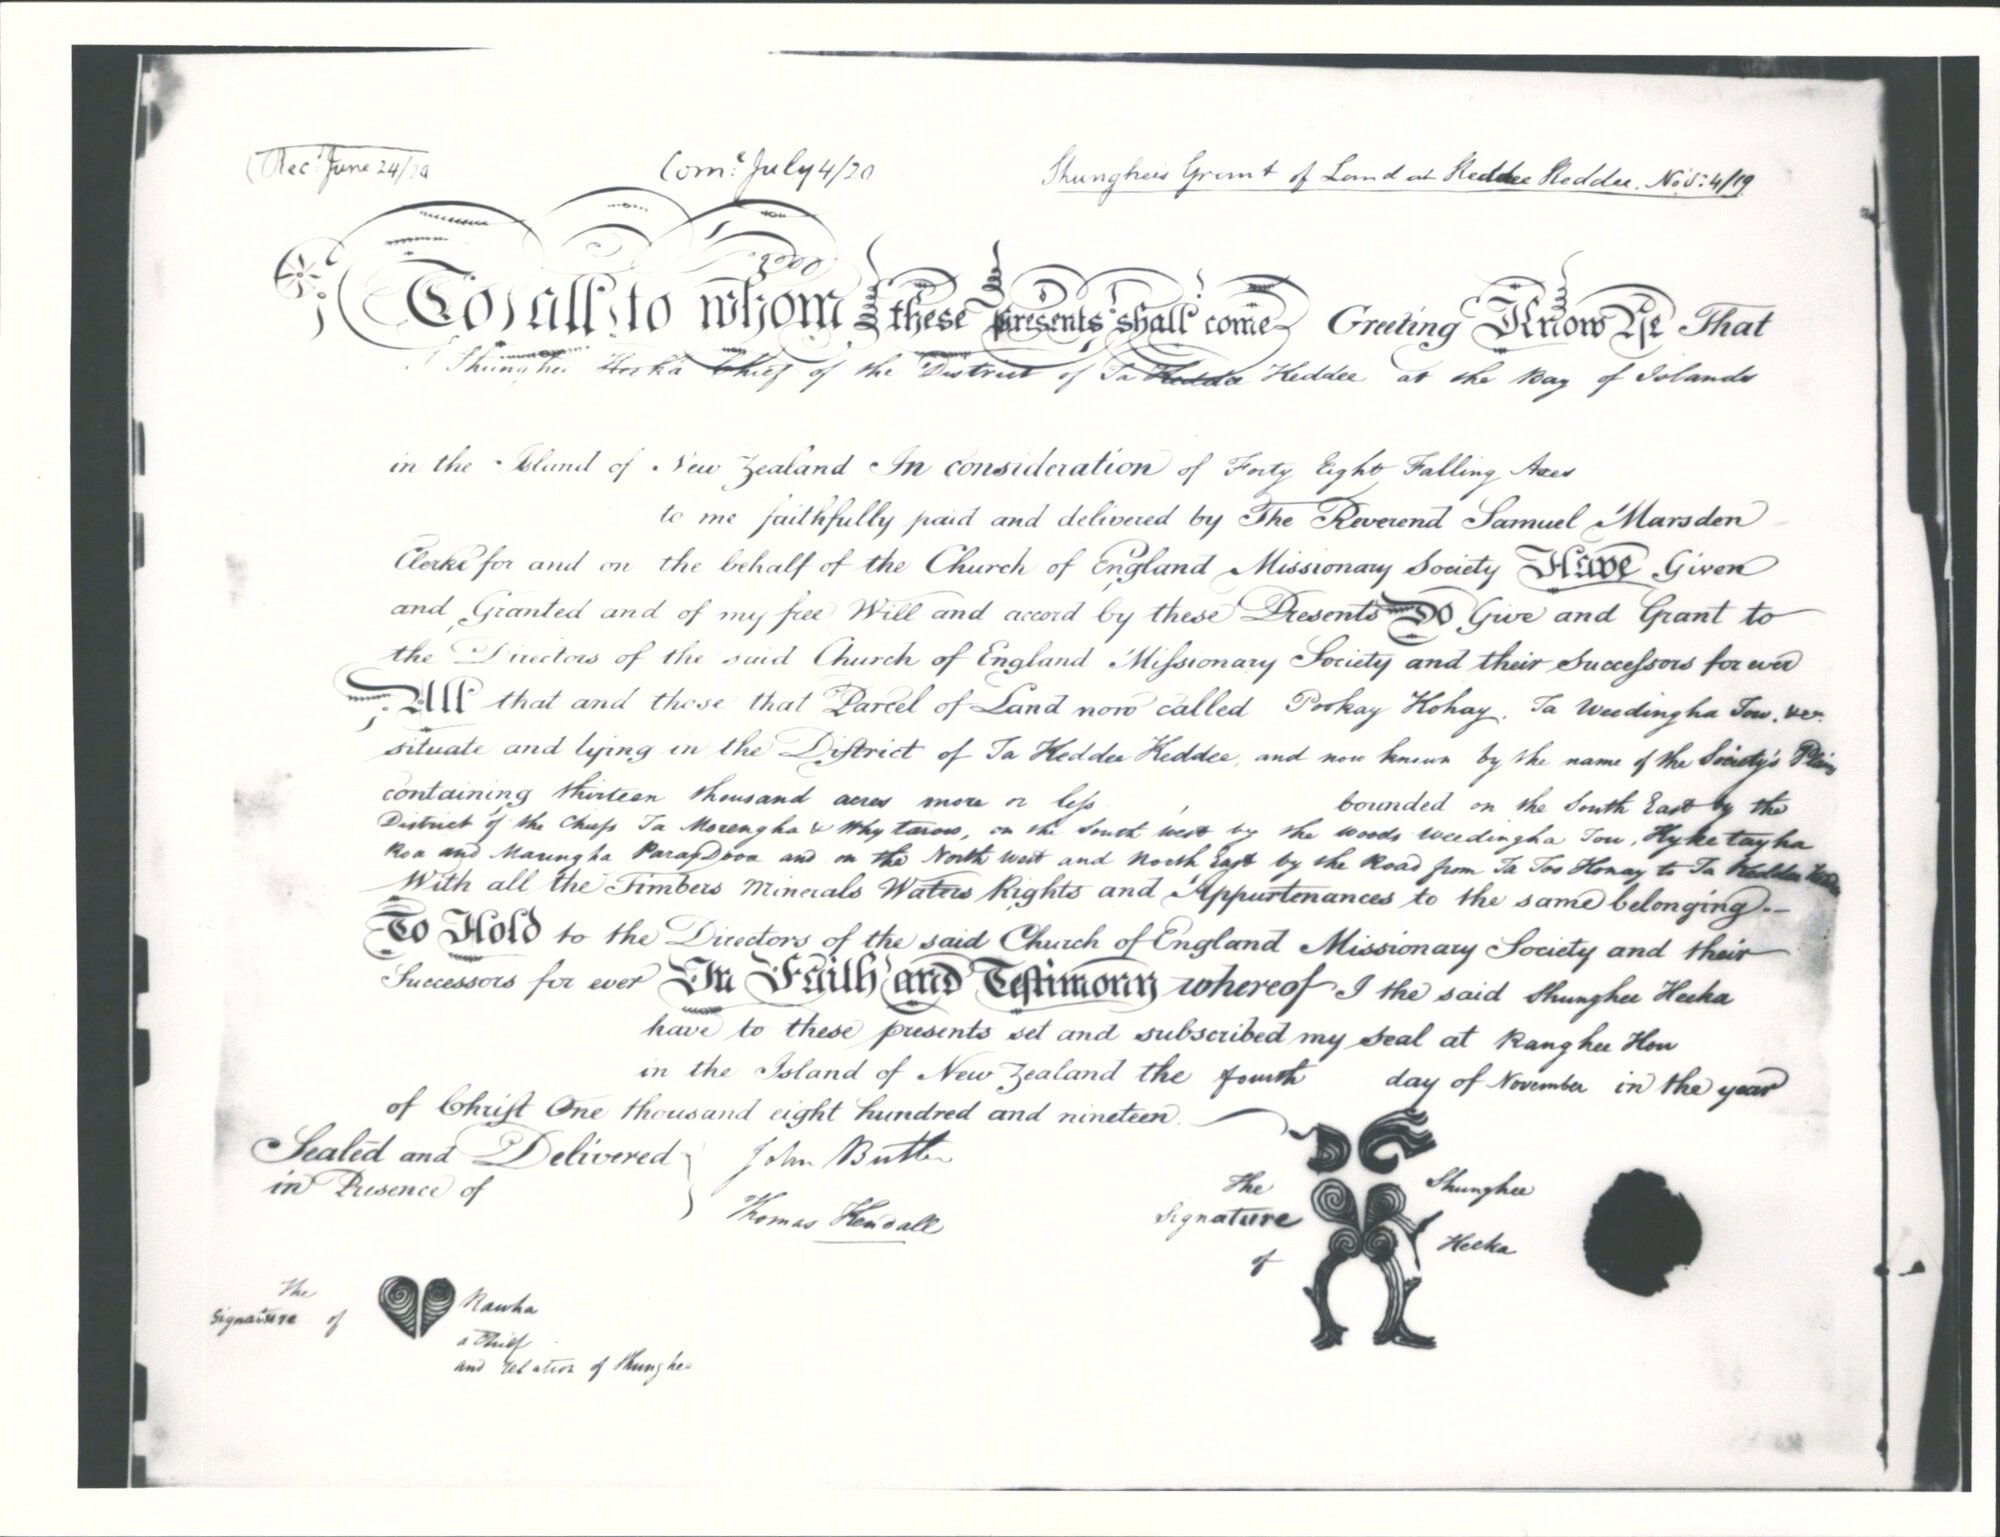 Recd. June 24/20
Come. July 4/20
Shunghees Grant of Land at Keddee Keddee. Novr. 4/19
To all to whom these presents shall come Greeting Know Ye That
I Shunghee Heeka Chief of the District of Ta Keddee Keddee at the Bay of Islands
in the Island of New Zealand In consideration of Forty Eight Falling Axes
to me faithfully paid and delivered by The Reverend Samuel Marsden
Clerke for and on the behalf of the Church of England Missionary Society Have Given
and Granted and of my free Will and accord by these Presents Do Give and Grant to
the Directors of the said Church of England Missionary Society and their Successors for ever
All that and those that Parcel of Land now called Pookay Kohay, Ta Weedingha Tow, &c.
situate and lying in the District of Ta Keddee Keddee, and now known by the name of the Society's Plain
containing thirteen thousand acres more or less bounded on the South East by the
District of the Chiefs Ta Morengha & Whytarow, on the South West by the woods Weedingha Tow, Hyketayha
Roa and Maungha Paray Dooa and on the North West and North East by the Road from Ta Too Honay to Ta Keddee Keddee
With all the Timbers Minerals Waters Rights and Appurtenances to the same belonging.
To Hold to the Directors of the said Church of England Missionary Society and their
Successors for ever In Faith and Testimony whereof I the said Shunghee Heeka
have to these presents set and subscribed my seal at Ranghee Hou
in the Island of New Zealand the fourth day of November in the year
of Christ One thousand eight hundred and nineteen.
Sealed and Delivered
in Presence of
John Butler
Thomas Kendall
The
Signature
of
Shunghee
Heeka
The
Signature of
Rawha
a Chief
and relation of Shunghee